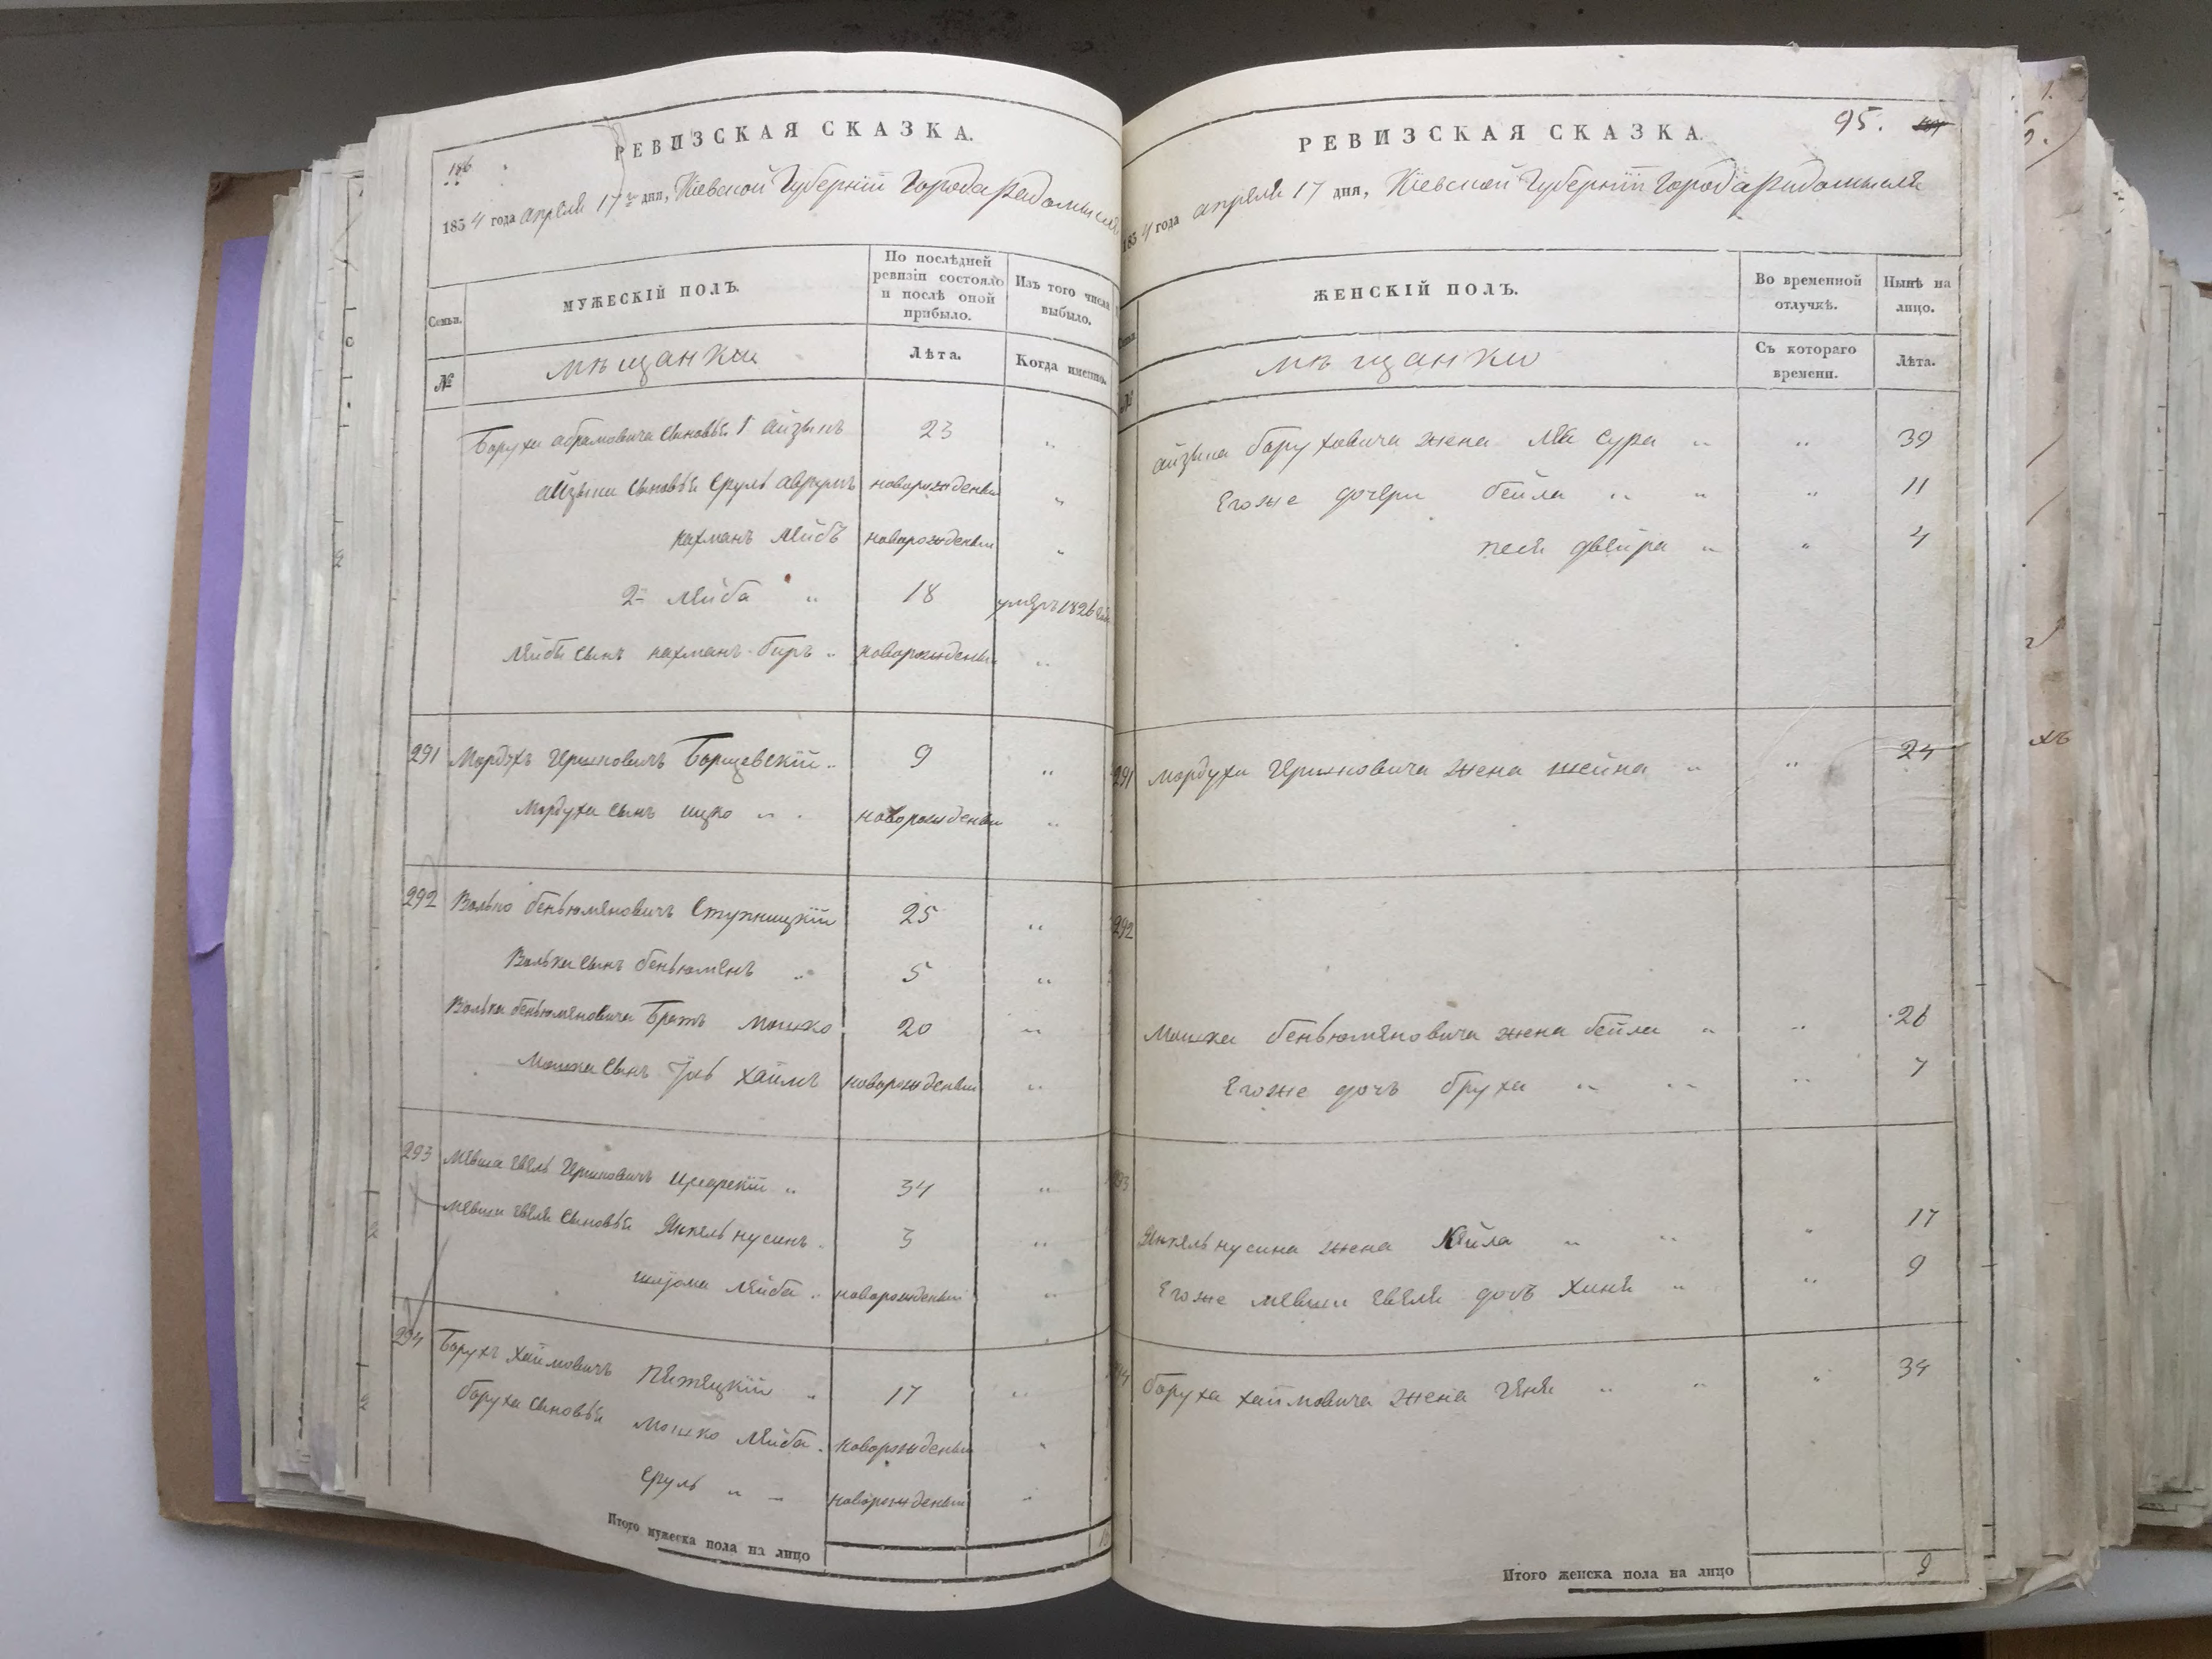 186
РЕВИЗСКАЯ СКАЗКА.
1854 года апреля 17го дня, Кіевской Губерніи Города Радомысля
Семьи.
МУЖЕСКІЙ ПОЛЪ.
По послѣдней ревизіи состояло и послѣ оной прибыло.
Изъ того числа выбыло.
№
мѣщанки
Лѣта.
Когда именно.
Боруха абрамовича сыновья 1 айзыкъ 23 "
айзыка сыновья Сруль авромъ новорожденый "
нахманъ лейбъ новорожденый "
2й лейба " 18 умеръ 1826
лейбы сынъ нахманъ-беръ " новорожденый "
291 Мордухъ Гершковичъ Борщевскій " 9 "
Мордуха сынъ ицко " новорожденый "
292 Волько беньюменовичъ Ступницкій 25 "
Волька сынъ беньюменъ " 5 "
Волька беньюменовича Братъ мошко 20 "
Мошка сынъ Хаимъ новорожденый "
293 мевша евель Гершковичъ " 34 "
мевши евеля сыновья Янкель нусинъ " 3 "
шлiома лейба " новорожденый "
294 Борухъ хаимовичъ " 17 "
боруха сыновья мошко лейба " новорожденый "
Сруль " " новорожденый "
Итого мужеска пола на лицо
РЕВИЗСКАЯ СКАЗКА.
95.
1854 года апреля 17 дня, Кіевской Губерніи города Радомысля
ЖЕНСКІЙ ПОЛЪ.
Во временной отлучкѣ.
Нынѣ на лицо.
№
мѣщанки
Съ котораго времени.
Лѣта.
айзыка боруховича жена леа сура " " 39
Егоже дочери бейла " " " 11
песя двейра " " 4
291 мордуха Гершковича жена шейна " " 24
292
Мошка беньюменовича жена бейла " " 26
Егоже дочь бруха " " " 7
293
Янкель нусина жена Кейла " " " 17
Егоже мевши евеля дочь хиня " " 9
294 боруха хаимовича жена геня " " " 34
Итого женска пола на лицо 9